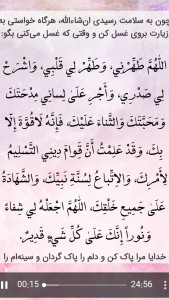 چون به سلامت رسیدی ان‌شاءالله، هرگاه خواستی به
زیارت بروی غسل کن و وقتی که غسل می‌کنی بگو:
اللَّهُمَّ طَهِّرْنِي، وَطَهِّرْ لِي قَلْبِي، وَاشْرَحْ
لِي صَدْرِي، وَأَجْرِ عَلَىٰ لِسانِي مِدْحَتَكَ
وَمَحَبَّتَكَ وَالثَّناءَ عَلَيْكَ، فَإِنَّهُ لَاقُوَّةَ إِلّا
بِكَ، وَقَدْ عَلِمْتُ أَنَّ قِوامَ دِينِي التَّسْلِيمُ
لِأَمْرِكَ، وَالاتِّباعُ لِسُنَّةِ نَبِيِّكَ، وَالشَّهادَةُ
عَلَىٰ جَمِيعِ خَلْقِكَ، اللّٰهُمَّ اجْعَلْهُ لِي شِفاءً
وَنُوراً إِنَّكَ عَلَىٰ كُلِّ شَيْءٍ قَدِيرٌ.
خدایا مرا پاک کن و دلم را پاک گردان و سینه‌ام را
00:15 24:56